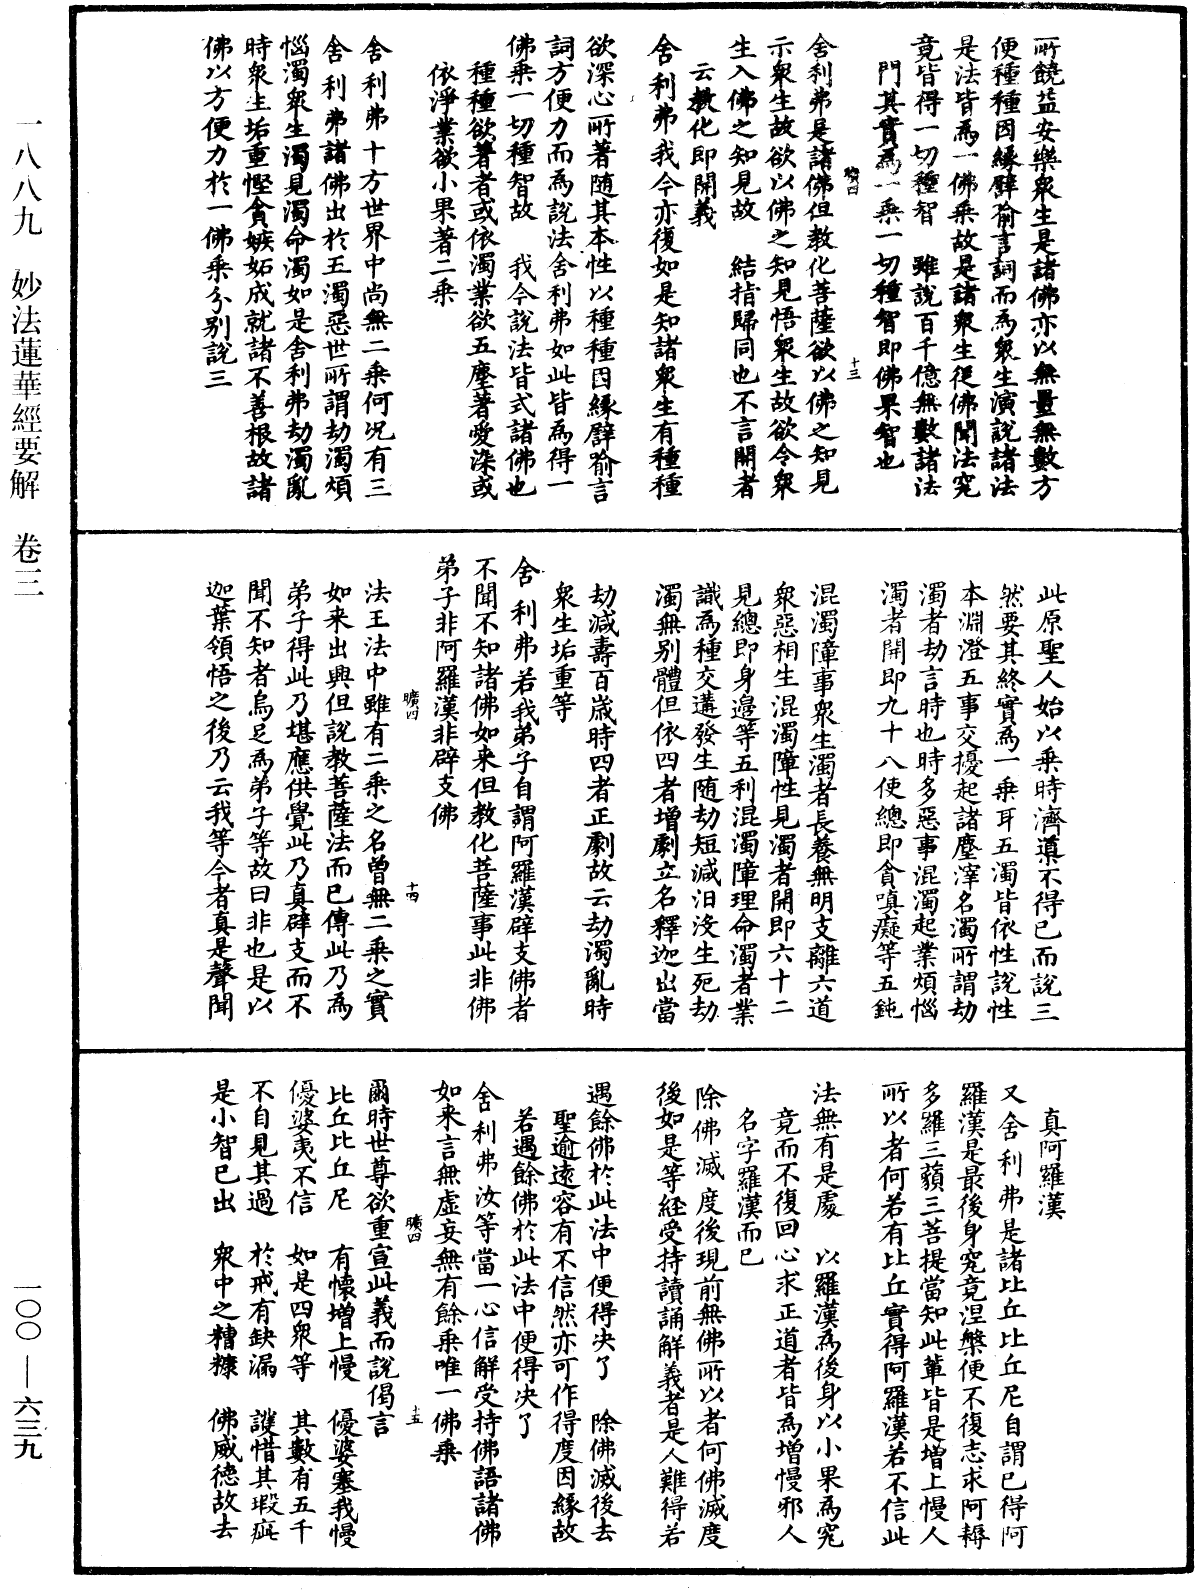 所饒益安樂衆生是諸佛亦以無量無數方
便種種因緣譬喻言詞而為衆生演說諸法
是法皆為一佛乗故是諸衆生從佛聞法究
竟皆得一切種智　雖說百千億無數諸法
門其實為一乗一切種智即佛果智也
曠四
十三
舍利弗是諸佛但教化菩薩欲以佛之知見
示衆生故欲以佛之知見悟衆生故欲令衆
生入佛之知見故　結指歸同也不言開者
云教化即開義
舍利弗我今亦復如是知諸衆生有種種
欲深心所著随其本性以種種因緣譬喻言
詞方便力而為說法舍利弗如此皆為得一
佛乗一切種智故　我今說法皆式諸佛也
種種欲著者或依濁業欲五塵著愛染或
依淨業欲小果著二乗
舍利弗十方世界中尚無二乗何况有三
舍利弗諸佛出於五濁惡世所謂劫濁煩
惱濁衆生濁見濁命濁如是舍利弗劫濁亂
時衆生垢重慳貪嫉妬成就諸不善根故諸
佛以方便力於一佛乗分别說三
此原聖人始以乗時濟導不得已而說三
然要其終實為一乗耳五濁皆依性說性
本淵澄五事交擾起諸塵滓名濁所謂劫
濁者劫言時也時多惡事混濁起業煩惱
濁者開即九十八使總即貪嗔癡等五鈍
混濁障事衆生濁者長養無明支離六道
衆惡相生混濁障性見濁者開即六十二
見總即身邊等五利混濁障理命濁者業
識為種交遘發生随劫短減汨没生死劫
濁無别體但依四者增劇立名釋迦出當
劫減壽百歲時四者正劇故云劫濁亂時
衆生垢重等
舍利弗若我弟子自謂阿羅漢辟支佛者
不聞不知諸佛如来但教化菩薩事此非佛
弟子非阿羅漢非辟支佛
曠四
十四
法王法中雖有二乗之名曾無二乗之實
如来出興但說教菩薩法而已傳此乃為
弟子得此乃堪應供覺此乃真辟支而不
聞不知者烏足為弟子等故曰非也是以
迦葉領悟之後乃云我等今者真是聲聞
真阿羅漢
又舍利弗是諸比丘比丘尼自謂已得阿
羅漢是最後身究竟涅槃便不復志求阿耨
多羅三藐三菩提當知此輩皆是增上慢人
所以者何若有比丘實得阿羅漢若不信此
法無有是處　以羅漢為後身以小果為究
竟而不復回心求正道者皆為增慢邪人
名字羅漢而已
除佛滅度後現前無佛所以者何佛滅度
後如是等経受持讀誦解義者是人難得若
遇餘佛於此法中便得决了　除佛滅後去
聖逾遠容有不信然亦可作得度因緣故
若遇餘佛於此法中便得决了
舍利弗汝等當一心信解受持佛語諸佛
如来言無虚妄無有餘乗唯一佛乗
曠四
十五
爾時世尊欲重宣此義而說偈言
比丘比丘尼　有懷增上慢　優婆塞我慢
優婆夷不信　如是四衆等　其數有五千
不自見其過　於戒有缺漏　護惜其瑕疵
是小智已出　衆中之糟糠　佛威德故去
一八八九　妙法蓮華經要解　卷三
一〇〇—六三九